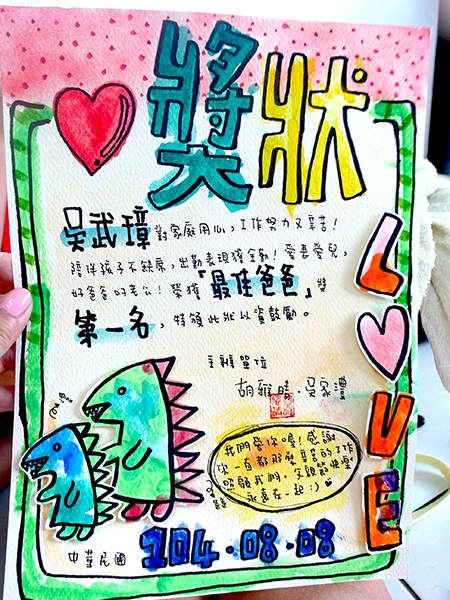 獎狀
吳武璋對家庭用心，工作努力又辛苦！
陪伴孩子不缺席，出勤表現獲全勤！愛妻愛兒，
好爸爸好老公！榮獲「最佳爸爸」獎
第一名，特頒此狀以資鼓勵。
主辦單位
胡雅晴．吳家澧
LOVE
我們愛你喔！感謝
你一直都那麼辛苦的工作
照顧我們，父親節快樂
永遠在一起:)
中華民國 104.08.08